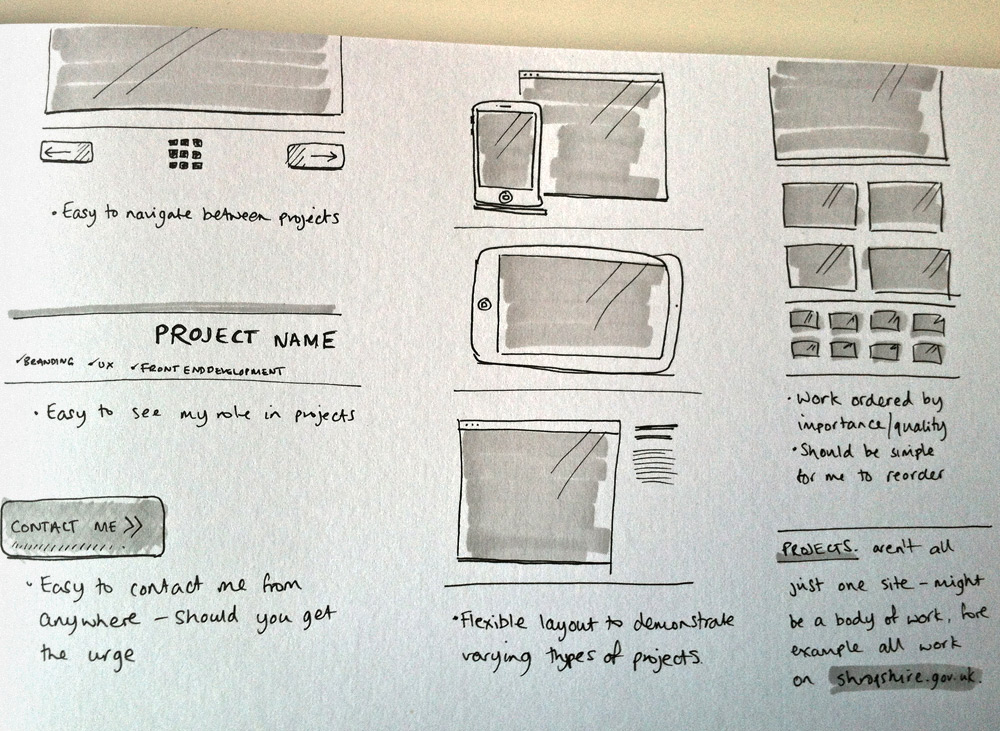 • Easy to navigate between projects
PROJECT NAME
✓BRANDING ✓UX ✓FRONT END DEVELOPMENT
• Easy to see my role in projects
CONTACT ME >>
• Easy to contact me from
anywhere – Should you get
the urge
• Flexible layout to demonstrate
varying types of projects.
• Work ordered by
importance/quality
• Should be simple
for me to reorder
PROJECTS. aren't all
just one site – might
be a body of work, fore
example all work
on shropshire.gov.uk.